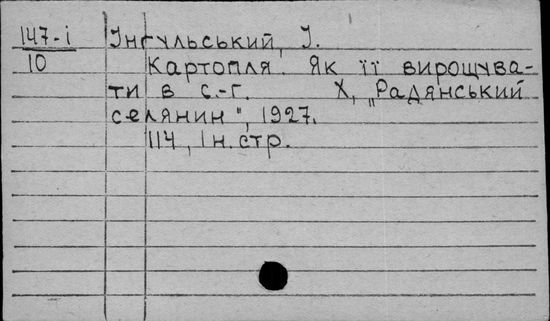 147-і
10
Інгульський, І.
Картопля. Як її вирощува-
ти в с.-г. Х, „Радянський
селянин", 1927.
114, 1 н. стр.